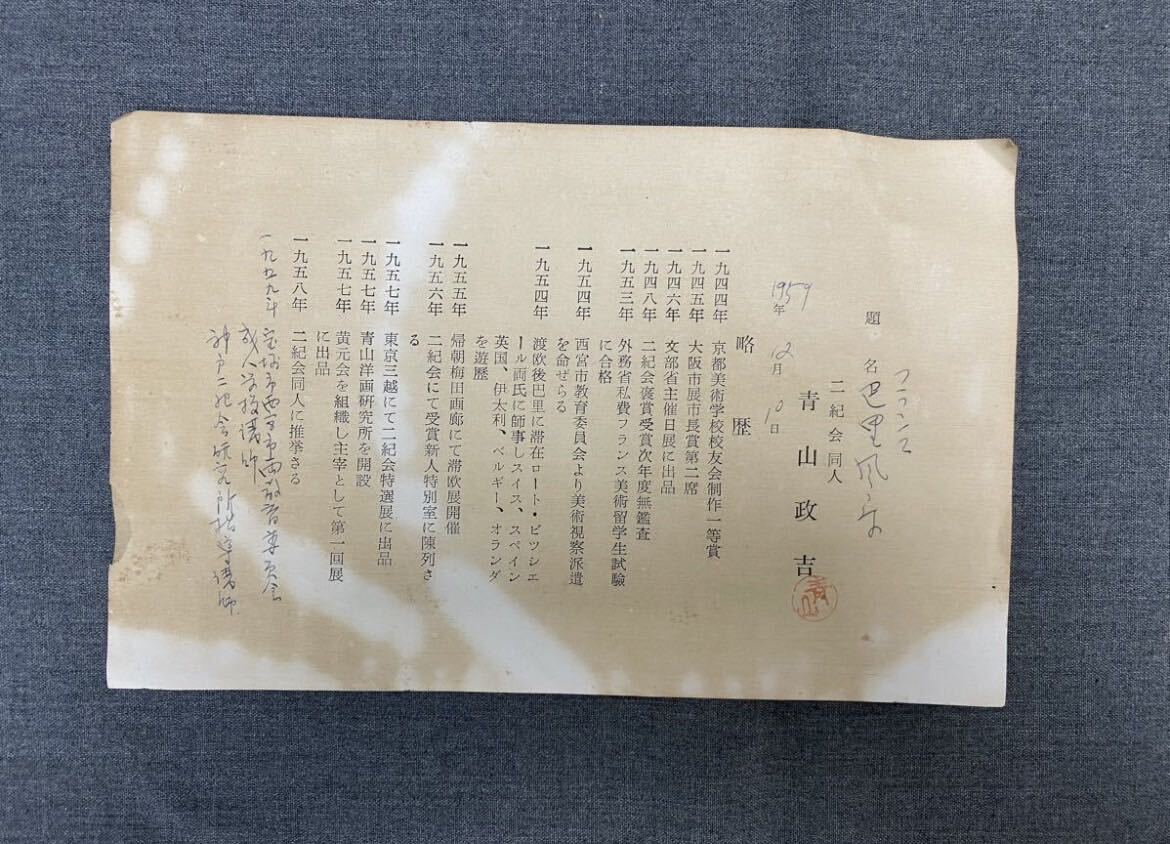 フランス
題名 巴里風景
二紀会同人
青山政吉
1959年12月10日
略歴
一九四四年 京都美術学校校友会制作一等賞
一九四五年 大阪市展市長賞第二席
一九四六年 文部省主催日展に出品
一九四八年 二紀会褒賞受賞次年度無鑑査
一九五三年 外務省私費フランス美術留学生試験
に合格
一九五四年 西宮市教育委員会より美術視察派遣
を命ぜらる
一九五四年 渡欧後巴里に滞在ロート・ビツシエ
ール両氏に師事しスイス、スペイン
英国、伊太利、ベルギー、オランダ
を遊歴
一九五五年 帰朝梅田画廊にて滞欧展開催
一九五六年 二紀会にて受賞新人特別室に陳列さ
る
一九五七年 東京三越にて二紀会特選展に出品
一九五七年 青山洋画研究所を開設
一九五七年 黄元会を組織し主宰として第一回展
に出品
一九五八年 二紀会同人に推挙さる
一九五九年 教育委員会
成人学校講師
神戸二紀会研究所指導講師